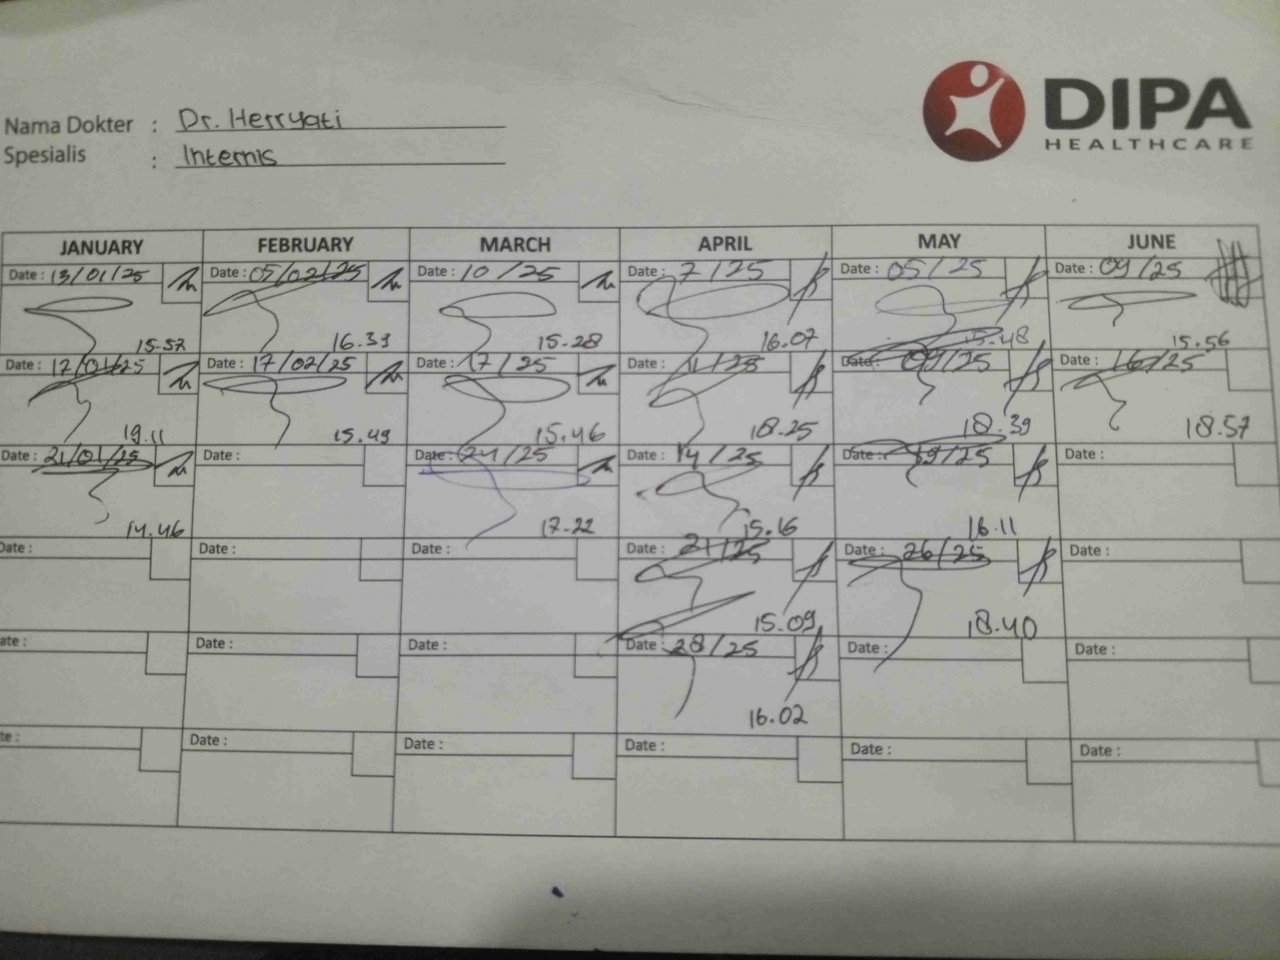 DIPA
HEALTHCARE
Nama Dokter : Dr. Herryati
Spesialis : Internis
JANUARY FEBRUARY MARCH APRIL MAY JUNE
Date : 13/01/25 Date : 05/02/25 Date : 10/25 Date : 7/25 Date : 05/25 Date : 09/25
15.57 16.33 15.28 16.07 15.48 15.56
Date : 17/01/25 Date : 17/02/25 Date : 17/25 Date : 11/25 Date : 09/25 Date : 16/25
19.11 15.49 15.46 18.25 18.39 18.57
Date : 21/01/25 Date : Date : 24/25 Date : 14/25 Date : 19/25 Date :
14.46 17.22 15.16 16.11
Date : Date : Date : Date : 21/25 Date : 26/25 Date :
15.09 18.40
ate : Date : Date : Date : 28/25 Date : Date :
16.02
te : Date : Date : Date : Date : Date :